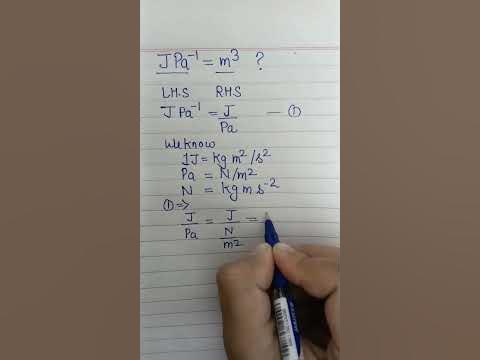 J Pa⁻¹ = m³ ?
L.H.S R.H.S
J Pa⁻¹ = J/Pa — ①
We know
1J = kg m²/s²
Pa = N/m²
N = kg m s⁻²
① ⇒
J/Pa = J/(N/m²) =